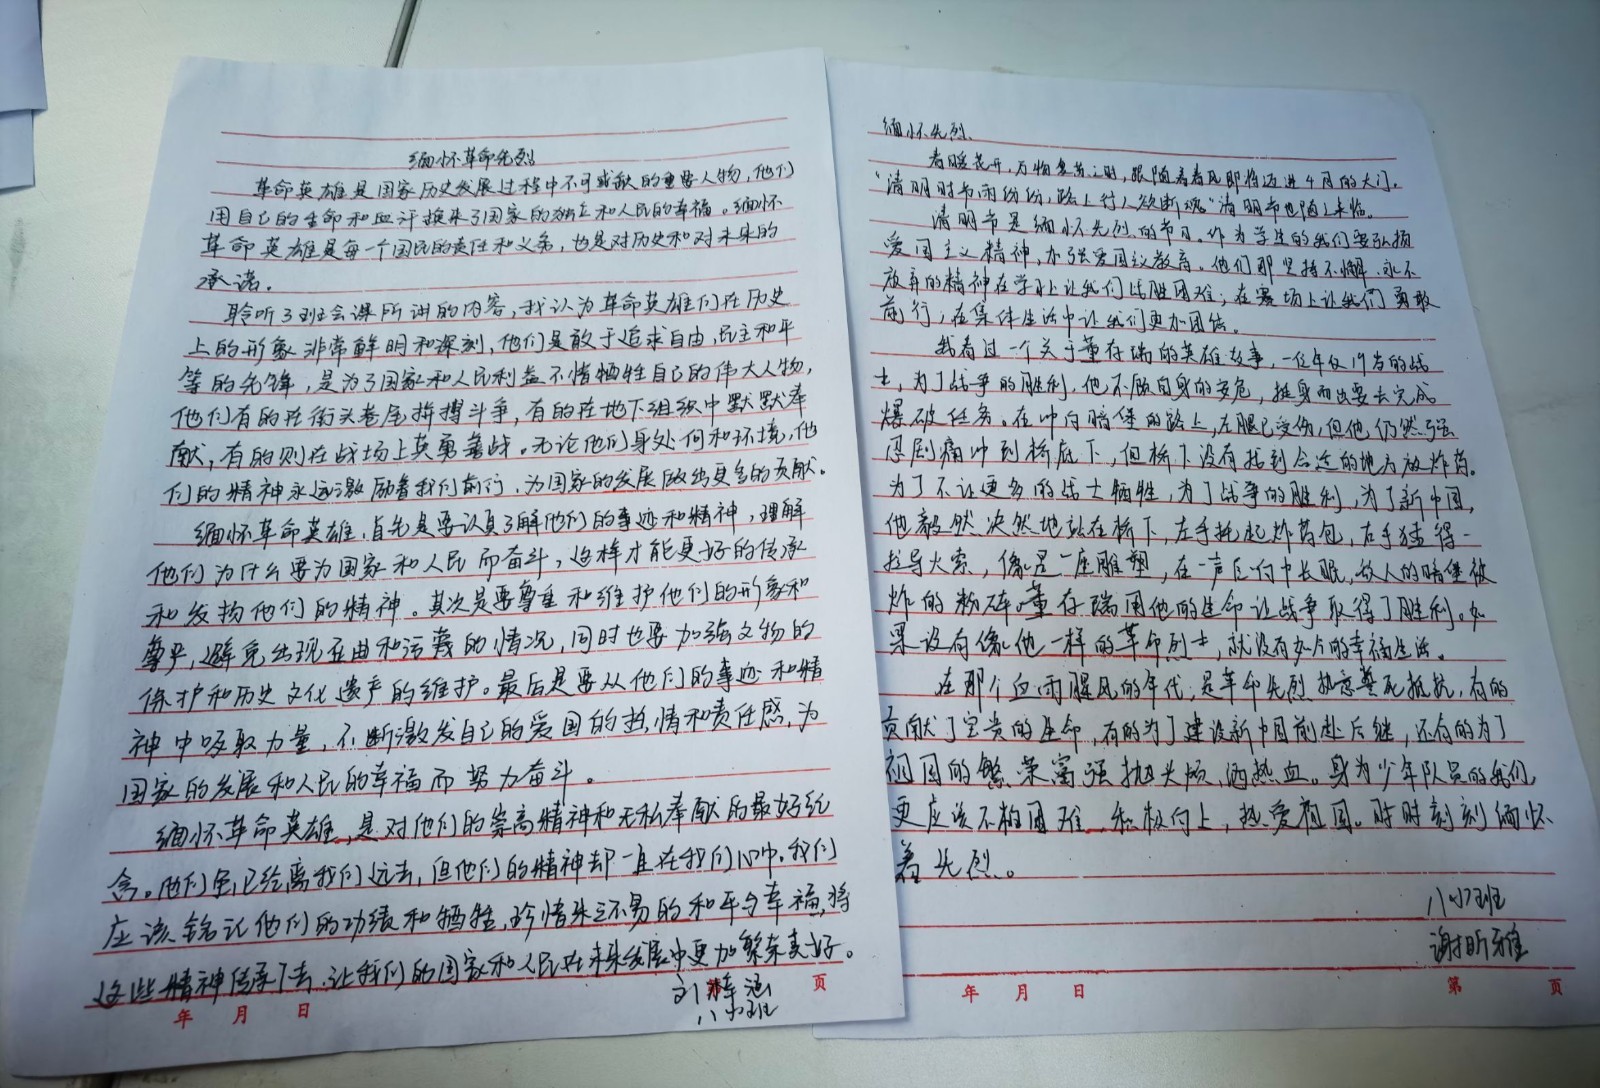 缅怀革命先烈
革命英雄是国家历史发展过程中不可或缺的重要人物,他们
用自己的生命和血汗换来了国家的独立和人民的幸福。缅怀
革命英雄是每一个国民的责任和义务,也是对历史和对未来的
承诺。
聆听了班会课所讲的内容,我认为革命英雄们在历史
上的形象非常鲜明和深刻,他们是敢于追求自由,民主和平
等的先锋,是为了国家和人民利益不惜牺牲自己的伟大人物,
他们有的在街头巷尾拚搏斗争,有的在地下组织中默默奉
献,有的则在战场上英勇善战。无论他们身处何和环境,他
们的精神永远激励着我们前行,为国家的发展做出更多的贡献。
缅怀革命英雄,首先是要认真了解他们的事迹和精神,理解
他们为什么要为国家和人民而奋斗,这样才能更好的传承
和发扬他们的精神。其次是要尊重和维护他们的形象和
尊严,避免出现歪曲和污蔑的情况,同时也要加强文物的
保护和历史文化遗产的维护。最后是要从他们的事迹和精
神中吸取力量,不断激发自己的爱国的热情和责任感,为
国家的发展和人民的幸福而努力奋斗。
缅怀革命英雄,是对他们的崇高精神和无私奉献的最好纪
念。他们虽已经离我们远去,但他们的精神却一直在我们心中。我们
应该铭记他们的功绩和牺牲,珍惜来之不易的和平与幸福,将
这些精神传承下去,让我们的国家和人民在未来发展中更加繁荣美好。
刘梓涵
八小班
年 月 日
第 页
缅怀先烈
春暖花开,万物复苏之时,跟随着春风即将迈进4月的大门,
“清明时节雨纷纷,路上行人欲断魂”清明节也随之来临。
清明节是缅怀先烈的节日。作为学生的我们要弘扬
爱国主义精神,加强爱国主义教育。他们那坚持不懈,永不
放弃的精神在学习上让我们战胜困难;在赛场上让我们勇敢
前行;在集体生活中让我们更加团结。
我看过一个关于董存瑞的英雄故事,一位年仅19岁的战
士,为了战争的胜利,他不顾自身的安危,挺身而出要去完成
爆破任务。在冲向暗堡的路上,左腿已受伤,但他仍然强
忍剧痛冲到桥底下,但桥下没有找到合适的地方放炸药。
为了不让更多的战士牺牲,为了战争的胜利,为了新中国,
他毅然决然地站在桥下,左手托起炸药包,右手猛得一
拉导火索,像是一座雕塑,在一声巨响中长眠,敌人的暗堡被
炸的粉碎。董存瑞用他的生命让战争取得了胜利。如
果没有像他一样的革命烈士,就没有如今的幸福生活。
在那个血雨腥风的年代,是革命先烈热意誓死抵抗,有的
贡献了宝贵的生命,有的为了建设新中国前赴后继,还有的为了
祖国的繁荣富强抛头颅,洒热血。身为少年队员的我们,
更应该不怕困难,积极向上,热爱祖国。时时刻刻缅怀
着先烈。
八小班
谢昕雅
年 月 日
第 页